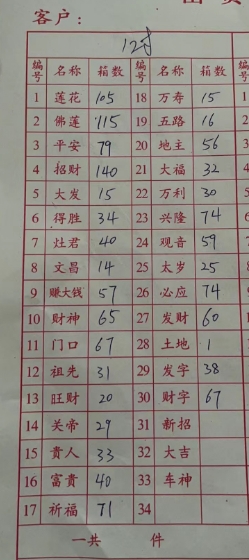 客户：
12寸
编号 名称 箱数 编号 名称 箱数
1 莲花 105 18 万寿 15
2 佛莲 115 19 五路 16
3 平安 79 20 地主 56
4 招财 140 21 大福 32
5 大发 15 22 万利 30
6 得胜 34 23 兴隆 74
7 灶君 40 24 观音 59
8 文昌 14 25 太岁 25
9 赚大钱 57 26 必应 74
10 财神 65 27 发财 60
11 门口 67 28 土地 1
12 祖先 31 29 发字 38
13 旺财 20 30 财字 67
14 关帝 29 31 新招
15 贵人 33 32 大吉
16 富贵 40 33 车神
17 祈福 71 34
一共 件